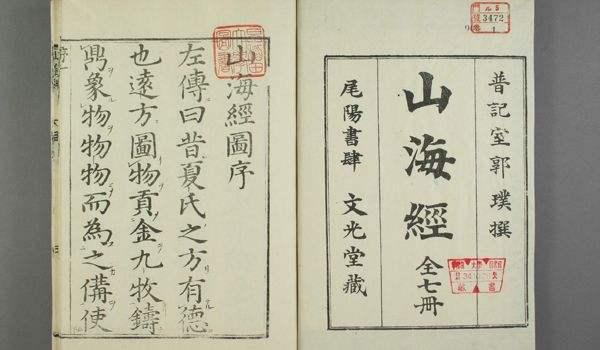 ルS
3472
1
晋記室郭璞撰
山海經
全七冊
尾陽書肆 文光堂藏
山海經圖序
左傳曰昔夏氏之方有德
也遠方圖物貢金九牧鑄
鼎象物物物而為之備使
序一